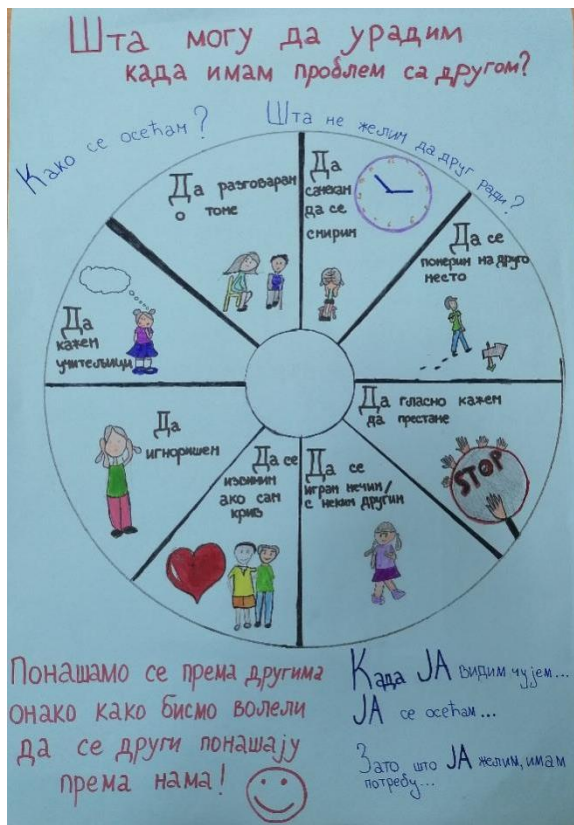 Шта могу да урадим
када имам проблем са другом?
Како се осећам?
Шта не желим да друг ради?
Да разговарам
о томе
Да
сачекам
да се
смирим
Да се
померим на друго
место
Да гласно кажем
да престане
STOP
Да се
играм нечим/
с неким другим
Да се
извиним
ако сам
крив
Да
игноришем
Да
кажем
учитељици
Понашамо се према другима
онако како бисмо волели
да се други понашају
према нама!
Када ЈА видим, чујем...
ЈА се осећам...
Зато што ЈА желим, имам
потребу...